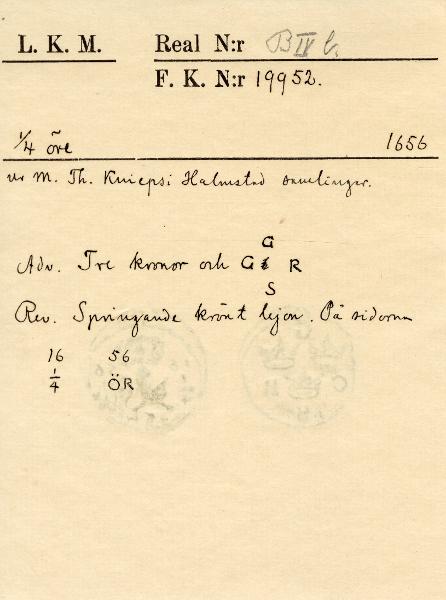 L. K. M.
Real N:r B IV b.
F. K. N:r 19952.
1/4 öre 1656
ur M. Th. Kniepsi Halmstad samlingar.
G
Adv. Tre kronor och G R
S
Rev. Springande krönt lejon. På sidorna
16 56
1/4 ÖR